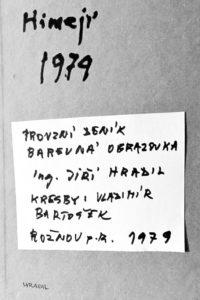 Himeji
1979
PROVZNÍ DENÍK
BAREVNÁ OBRAZOVKA
Ing. JIŘÍ HRADIL
KRESBY: VLADIMÍR
BARTOŠEK
ROŽNOV p.R. 1979
HRADIL